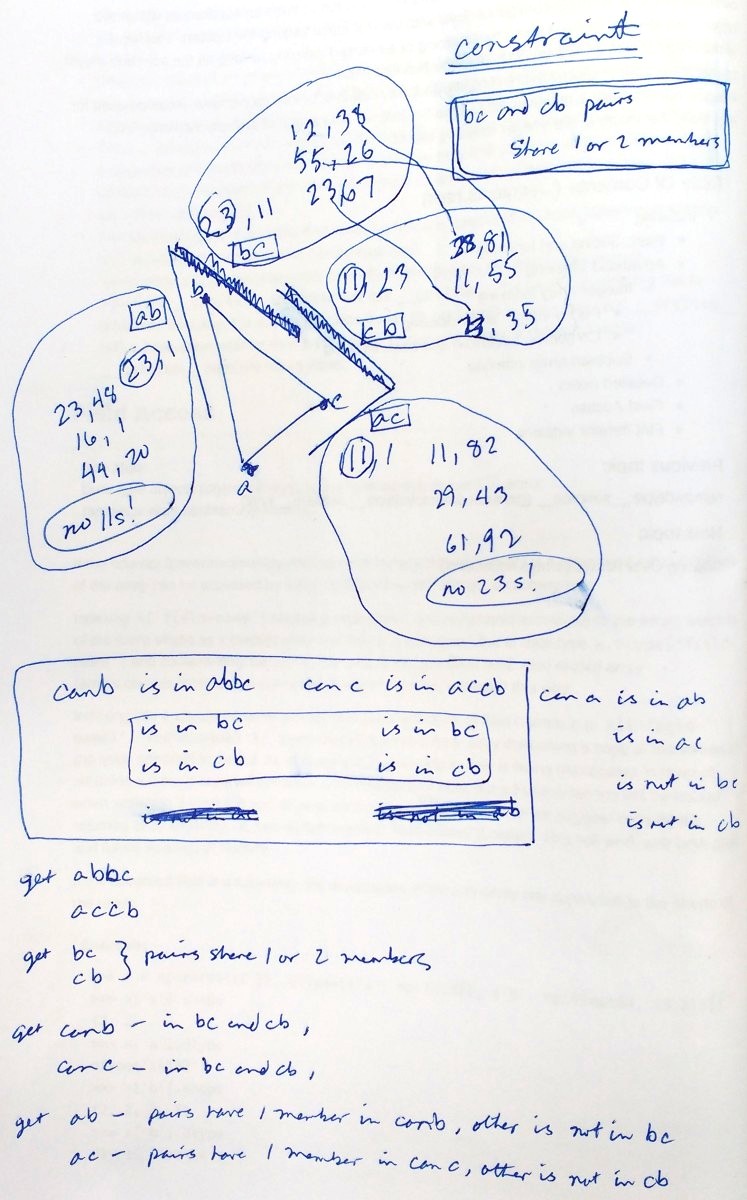 constraint
bc and cb pairs
share 1 or 2 members
12, 38
55, 26
23, 67
23, 11
bc
38, 81
11, 55
11, 23
cb
23, 35
ab
23, 1
23, 48
16, 1
44, 20
no 11s!
b
c
a
ac
11, 1
11, 82
29, 43
61, 92
no 23s!
canb is in abbc
is in bc
is in cb
is not in ac
can c is in accb
is in bc
is in cb
is not in ab
can a is in ab
is in ac
is not in bc
is not in cb
get abbc
accb
get bc
cb } pairs share 1 or 2 members
get canb - in bc and cb,
can c - in bc and cb,
get ab - pairs have 1 member in canb, other is not in bc
ac - pairs have 1 member in can c, other is not in cb